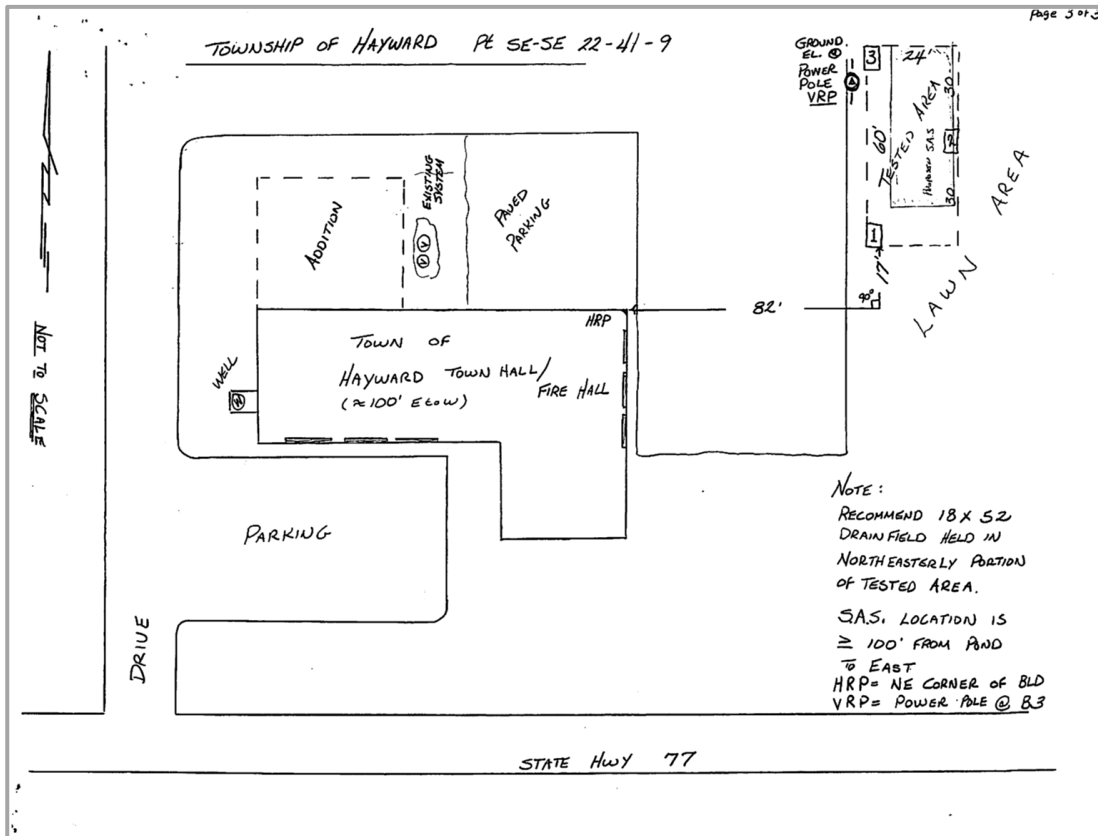 Page 3 of 3
TOWNSHIP OF HAYWARD Pt SE-SE 22-41-9
GROUND
EL. @
POWER
POLE
VRP
3
24'
30
60'
TESTED AREA
S.A.S.
2
30
1
17'
90°
LAWN AREA
EXISTING
SYSTEM
V V
ADDITION
PAVED
PARKING
82'
HRP
TOWN OF
HAYWARD TOWN HALL/
FIRE HALL
(≈100' E to W)
WELL
W
NOT TO SCALE
PARKING
DRIVE
NOTE:
RECOMMEND 18 X 52
DRAINFIELD HELD IN
NORTHEASTERLY PORTION
OF TESTED AREA.
S.A.S. LOCATION IS
≥ 100' FROM POND
TO EAST
HRP= NE CORNER OF BLD
VRP= POWER POLE @ B3
STATE HWY 77